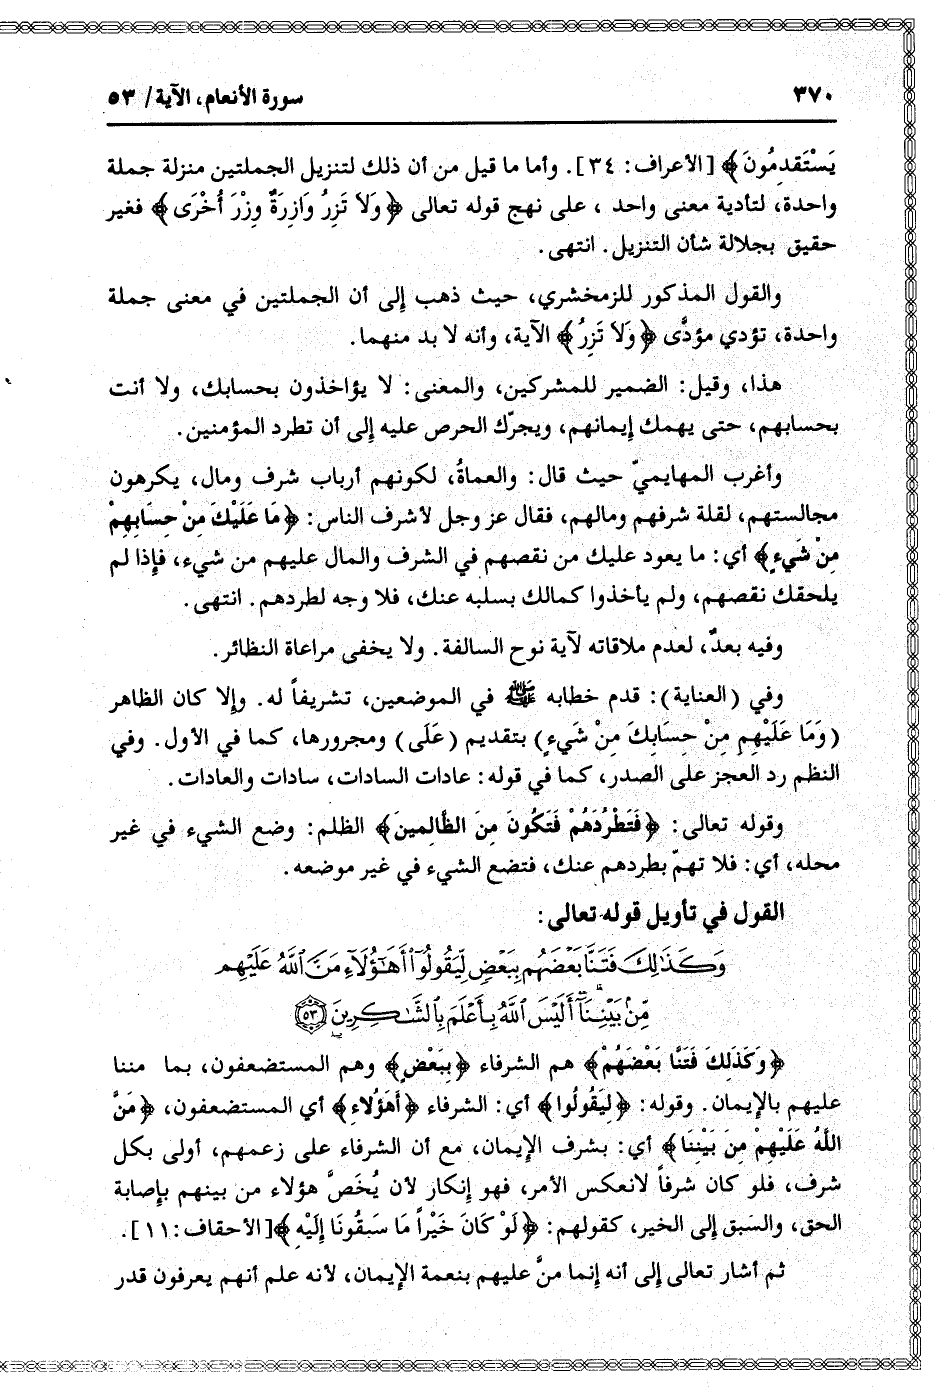 ٣٧٠ سورة الأنعام، الآية/ ٥٣
يَسْتَقدِمُونَ﴾ [الأعراف: ٣٤]. وأما ما قيل من أن ذلك لتنزيل الجملتين منزلة جملة
واحدة، لتأدية معنى واحد ، على نهج قوله تعالى ﴿وَلاَ تَزِرُ وَازِرَةٌ وِزْرَ أُخْرَى﴾ فغير
حقيق بجلالة شأن التنزيل. انتهى.
والقول المذكور للزمخشري، حيث ذهب إلى أن الجملتين في معنى جملة
واحدة، تؤدي مؤدَّى ﴿وَلاَ تَزِرُ﴾ الآية، وأنه لا بد منهما.
هذا، وقيل: الضمير للمشركين، والمعنى: لا يؤاخذون بحسابك، ولا أنت
بحسابهم، حتى يهمك إيمانهم، ويجرّك الحرص عليه إلى أن تطرد المؤمنين.
وأغرب المهايميّ حيث قال: والعماةُ، لكونهم أرباب شرف ومال، يكرهون
مجالستهم، لقلة شرفهم ومالهم، فقال عز وجل لأشرف الناس: ﴿مَا عَلَيْكَ مِنْ حِسَابِهِمْ
مِنْ شَيءٍ﴾ أي: ما يعود عليك من نقصهم في الشرف والمال عليهم من شيء، فإذا لم
يلحقك نقصهم، ولم يأخذوا كمالك بسلبه عنك، فلا وجه لطردهم. انتهى.
وفيه بعدٌ، لعدم ملاقاته لآية نوح السالفة. ولا يخفى مراعاة النظائر.
وفي (العناية): قدم خطابه ﷺ في الموضعين، تشريفاً له. وإلا كان الظاهر
(وَمَا عَلَيْهِم مِنْ حِسَابِكَ مِنْ شَيءٍ) بتقديم (عَلَى) ومجرورها، كما في الأول. وفي
النظم رد العجز على الصدر، كما في قوله: عادات السادات، سادات والعادات.
وقوله تعالى: ﴿فَتَطْرُدَهُمْ فَتَكُونَ مِنَ الظَّالِمينَ﴾ الظلم: وضع الشيء في غير
محله، أي: فلا تهمّ بطردهم عنك، فتضع الشيء في غير موضعه.
القول في تأويل قوله تعالى:
وَكَذَٰلِكَ فَتَنَّا بَعْضَهُم بِبَعْضٍ لِّيَقُولُوٓا۟ أَهَٰٓؤُلَآءِ مَنَّ ٱللَّهُ عَلَيْهِم
مِّنۢ بَيْنِنَآ أَلَيْسَ ٱللَّهُ بِأَعْلَمَ بِٱلشَّٰكِرِينَ ٥٣
﴿وَكَذَلِكَ فَتَنَّا بَعْضَهُمْ﴾ هم الشرفاء ﴿بِبَعْضٍ﴾ وهم المستضعفون، بما مننا
عليهم بالإيمان. وقوله: ﴿لِيَقُولُوا﴾ أي: الشرفاء ﴿أَهَؤُلاءِ﴾ أي المستضعفون، ﴿مَنَّ
اللَّهُ عَلَيْهِمْ مِنَ بَيْنِنَا﴾ أي: بشرف الإيمان، مع أن الشرفاء على زعمهم، أولى بكل
شرف، فلو كان شرفاً لانعكس الأمر، فهو إنكار لأن يُخَصَّ هؤلاء من بينهم بإصابة
الحق، والسَبق إلى الخير، كقولهم: ﴿لَوْ كَانَ خَيْراً مَا سَبَقُونَا إِلَيْهِ﴾[الأحقاف:١١].
ثم أشار تعالى إلى أنه إنما منَّ عليهم بنعمة الإيمان، لأنه علم أنهم يعرفون قدر